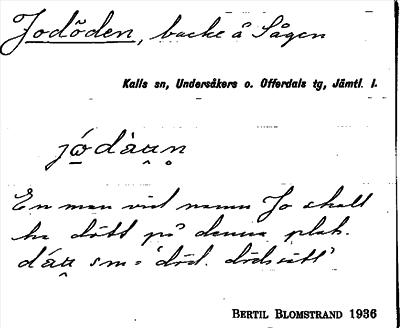 Jodöden, backe å Sågen
Kalls sn, Undersåkers o. Offerdals tg, Jämtl. l.
En man vid namn Jo skall
ha dött på denna plats.
sm = 'död. dödssätt'
BERTIL BLOMSTRAND 1936